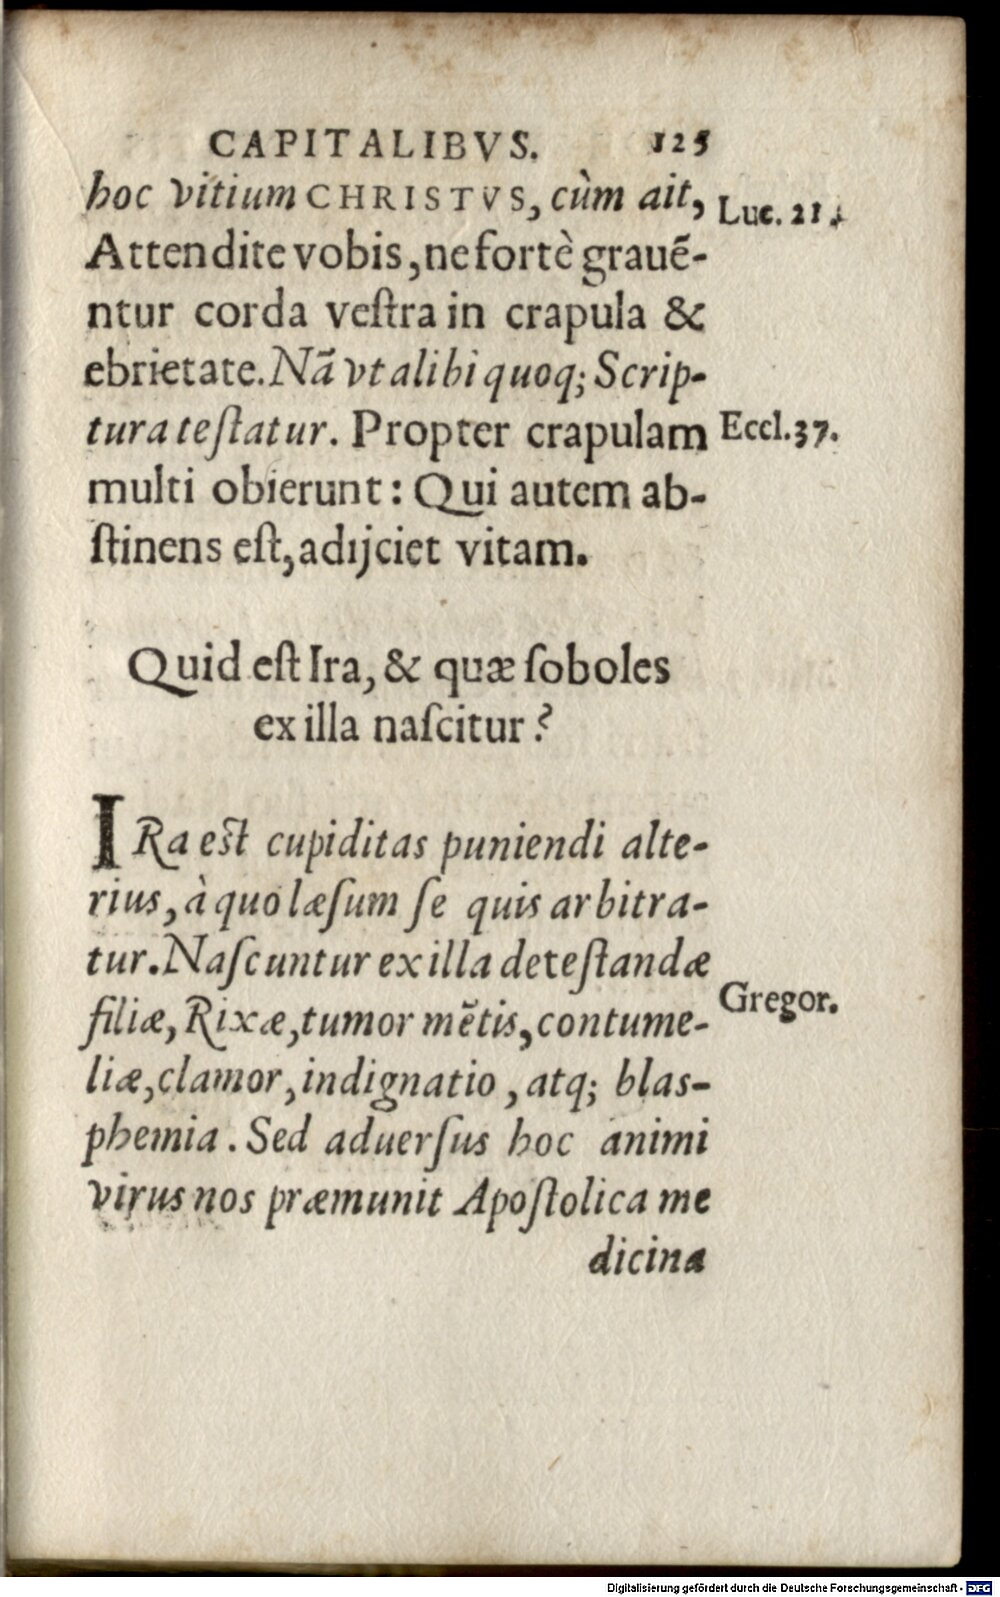 CAPITALIBVS. 125
hoc vitium CHRISTVS, cùm ait, Luc. 21.
Attendite vobis, ne fortè grauē-
ntur corda veſtra in crapula &
ebrietate. Nā vt alibi quoq; Scrip-
tura teſtatur. Propter crapulam Eccl. 37.
multi obierunt: Qui autem ab-
ſtinens eſt, adijciet vitam.
Quid eſt Ira, & quæ ſoboles
ex illa naſcitur?
IRa eſt cupiditas puniendi alte-
rius, à quo læſum ſe quis arbitra-
tur. Naſcuntur ex illa deteſtandæ
filiæ, Rixæ, tumor mētis, contume- Gregor.
liæ, clamor, indignatio, atq; blas-
phemia. Sed aduerſus hoc animi
virus nos præmunit Apoſtolica me
dicina
Digitalisierung gefördert durch die Deutsche Forschungsgemeinschaft - DFG